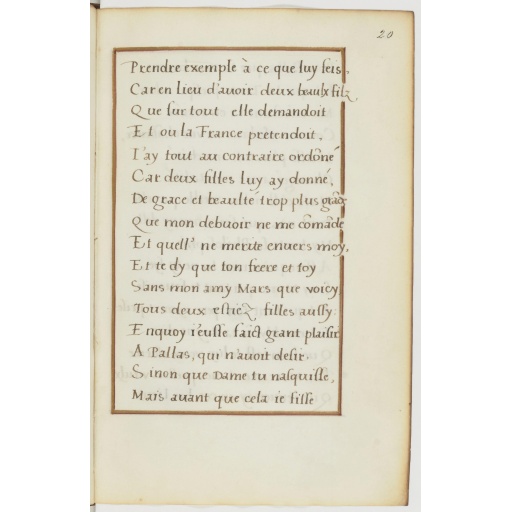 20
Prendre exemple à ce que luy feis,
Car en lieu d'auoir deux beaulx filz
Que sur tout elle demandoit
Et ou la France pretendoit,
I'ay tout au contraire ordōné
Car deux filles luy ay donné,
De grace et beaulté trop plus grāde
Que mon debuoir ne me cōmāde
Et quell' ne merite enuers moy,
Et te dy que ton frere et toy
Sans mon amy Mars que voicy
Tous deux estiez filles aussy
En quoy i'eusse faict grant plaisir
A Pallas, qui n'auoit desir
Sinon que Dame tu nasquisse,
Mais auant que cela ie fisse